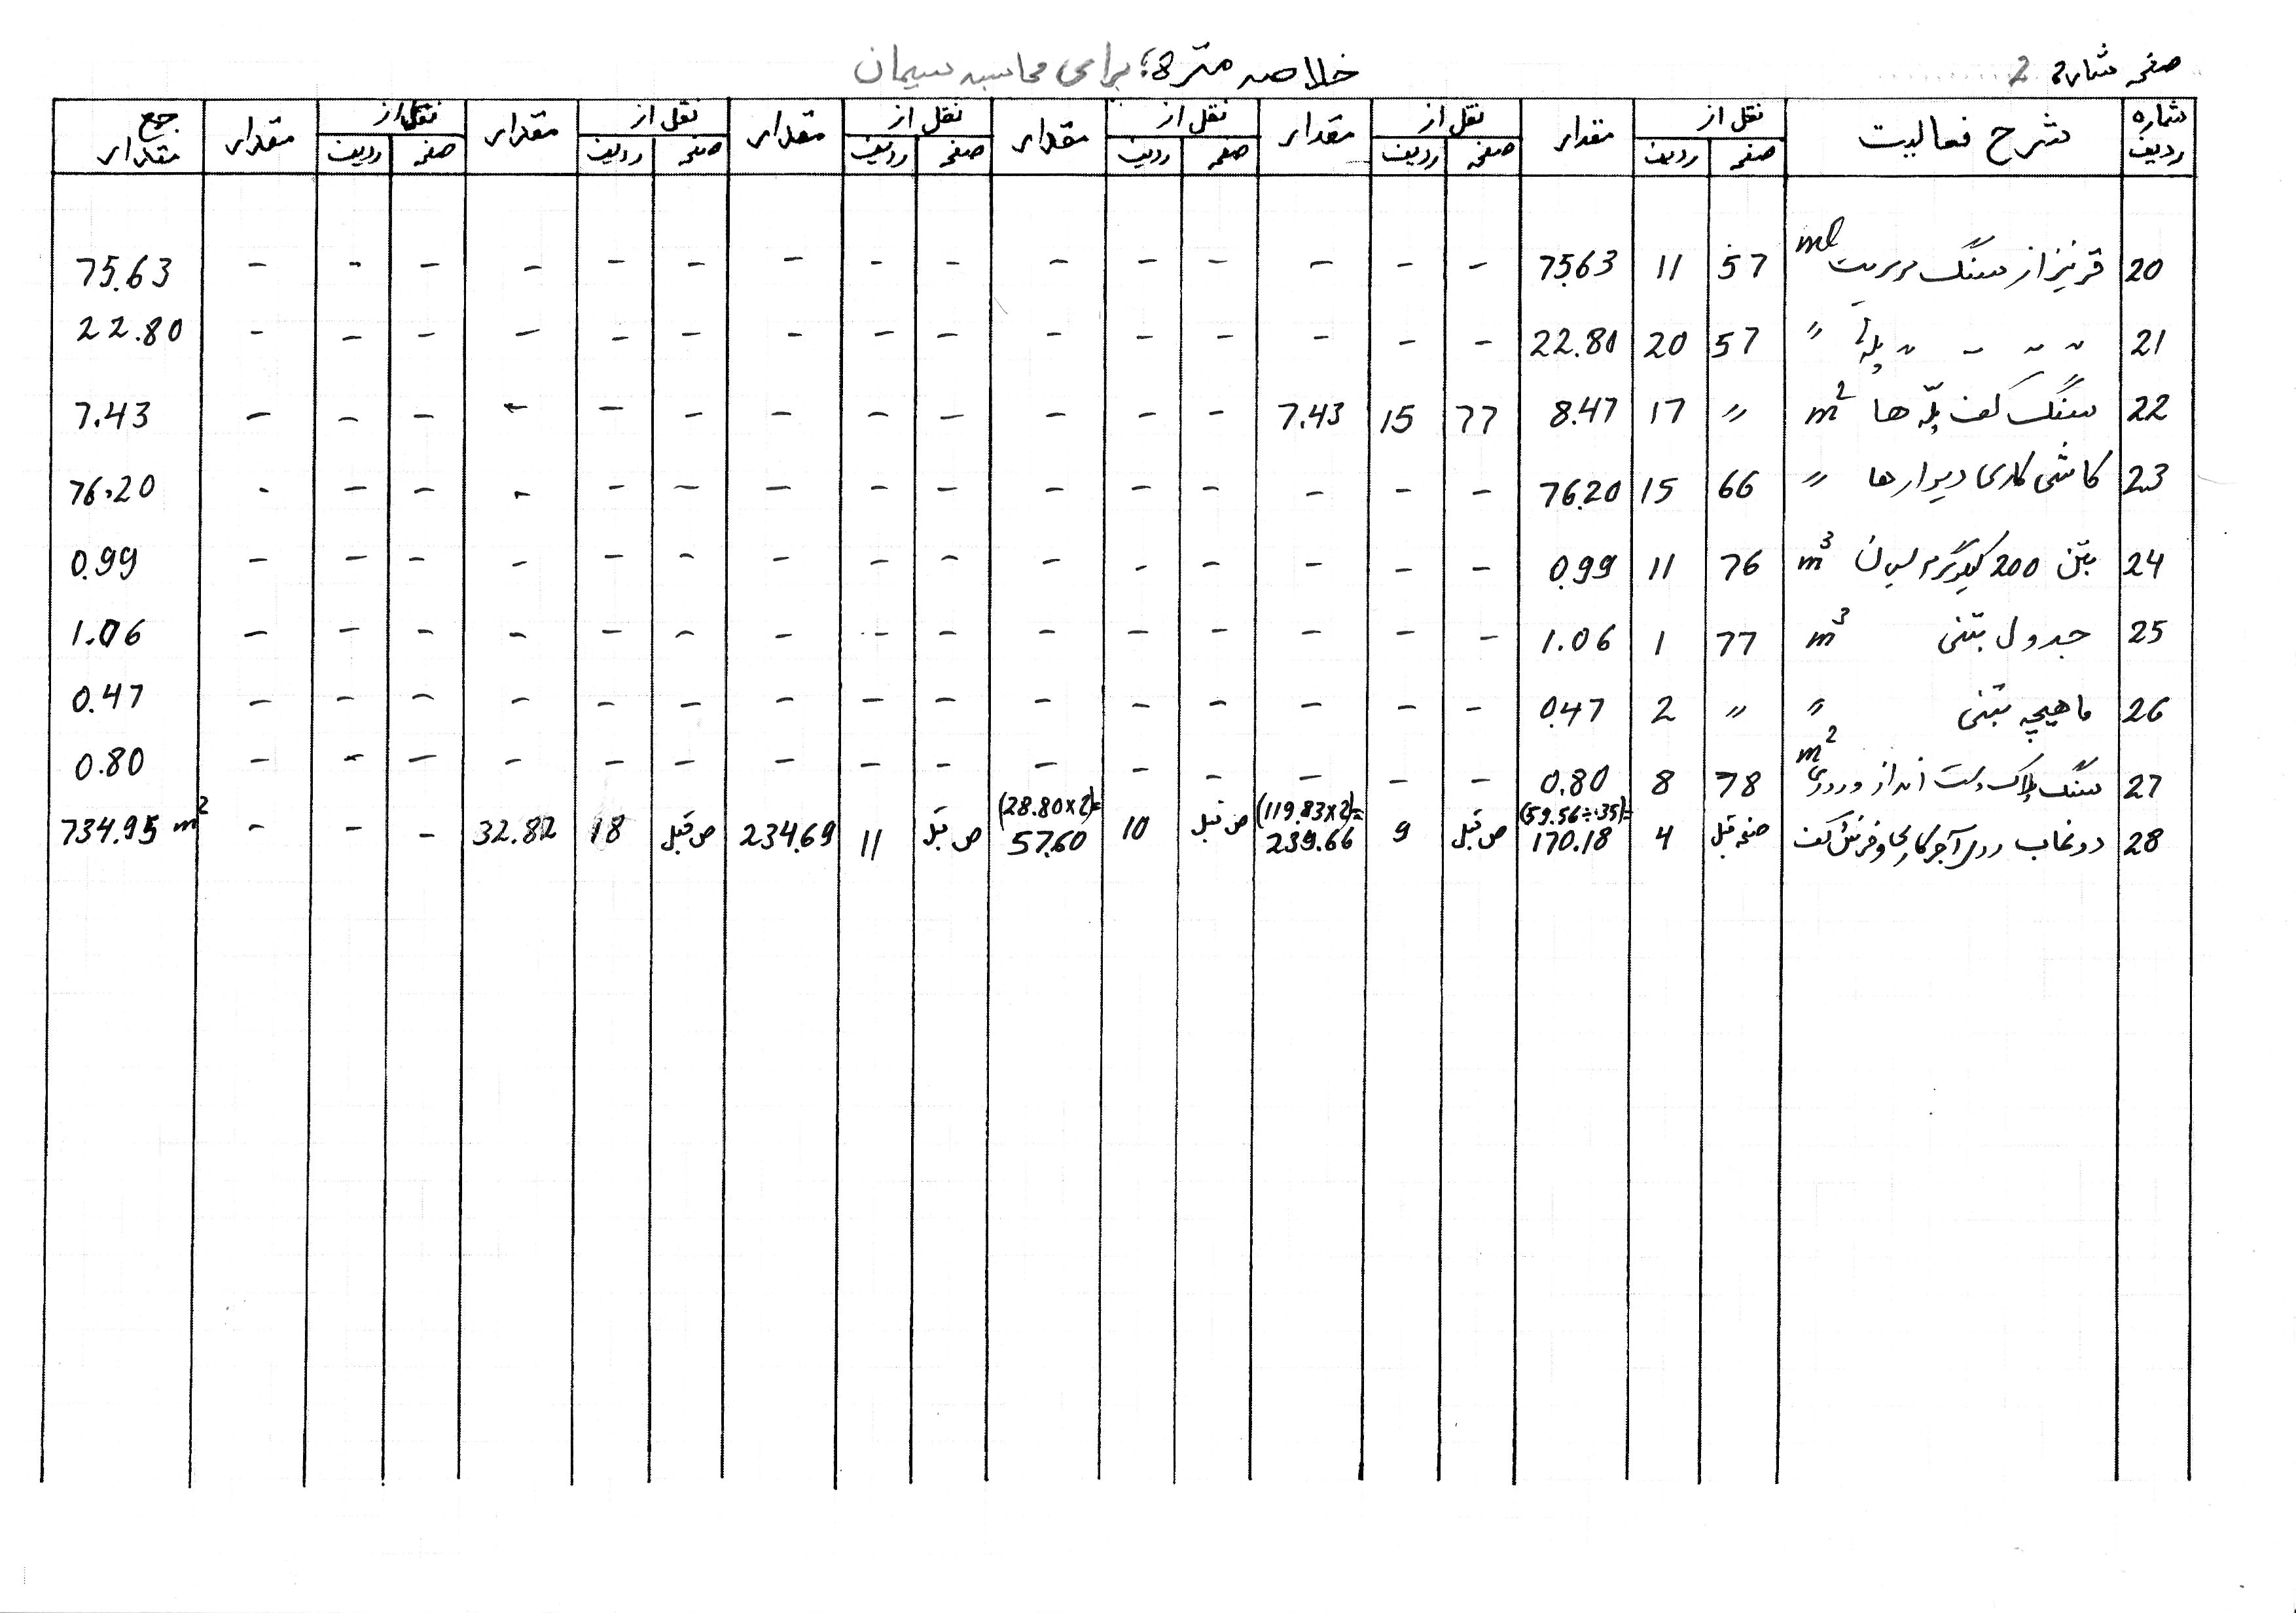 صفحه شماره 2
خلاصه متره؛ برای محاسبه سیمان
شماره ردیف | شرح فعالیت | نقل از صفحه ردیف | مقدار | نقل از صفحه ردیف | مقدار | نقل از صفحه ردیف | مقدار | نقل از صفحه ردیف | مقدار | نقل از صفحه ردیف | مقدار | نقل از صفحه ردیف | مقدار | جمع مقدار
20 قرنیز از سنگ مرمریت ml 57 11 75.63 - - - - - - - - - - - - - - - 75.63
21 " " - " پله " 57 20 22.80 - - - - - - - - - - - - - - - 22.80
22 سنگ کف پله ها m² " 17 8.47 77 15 7.43 - - - - - - - - - - - - 7.43
23 کاشی کاری دیوارها " 66 15 76.20 - - - - - - - - - - - - - - - 76.20
24 بتن 200 کیلوگرم سیمان m³ 76 11 0.99 - - - - - - - - - - - - - - - 0.99
25 جدول بتنی m³ 77 1 1.06 - - - - - - - - - - - - - - - 1.06
26 ماهیچه بتنی " " 2 0.47 - - - - - - - - - - - - - - - 0.47
27 سنگ پلاک دست انداز ورودی m² 78 8 0.80 - - - - - - - - - - - - - - - 0.80
28 دوغاب روی آجرکاری و فرش کف صفحه قبل 4 (59.56÷.35)= 170.18 ص قبل 9 (119.83×2)= 239.66 ص قبل 10 (28.80×2)= 57.60 ص قبل 11 234.69 ص قبل 18 32.82 - - - 734.95 m²